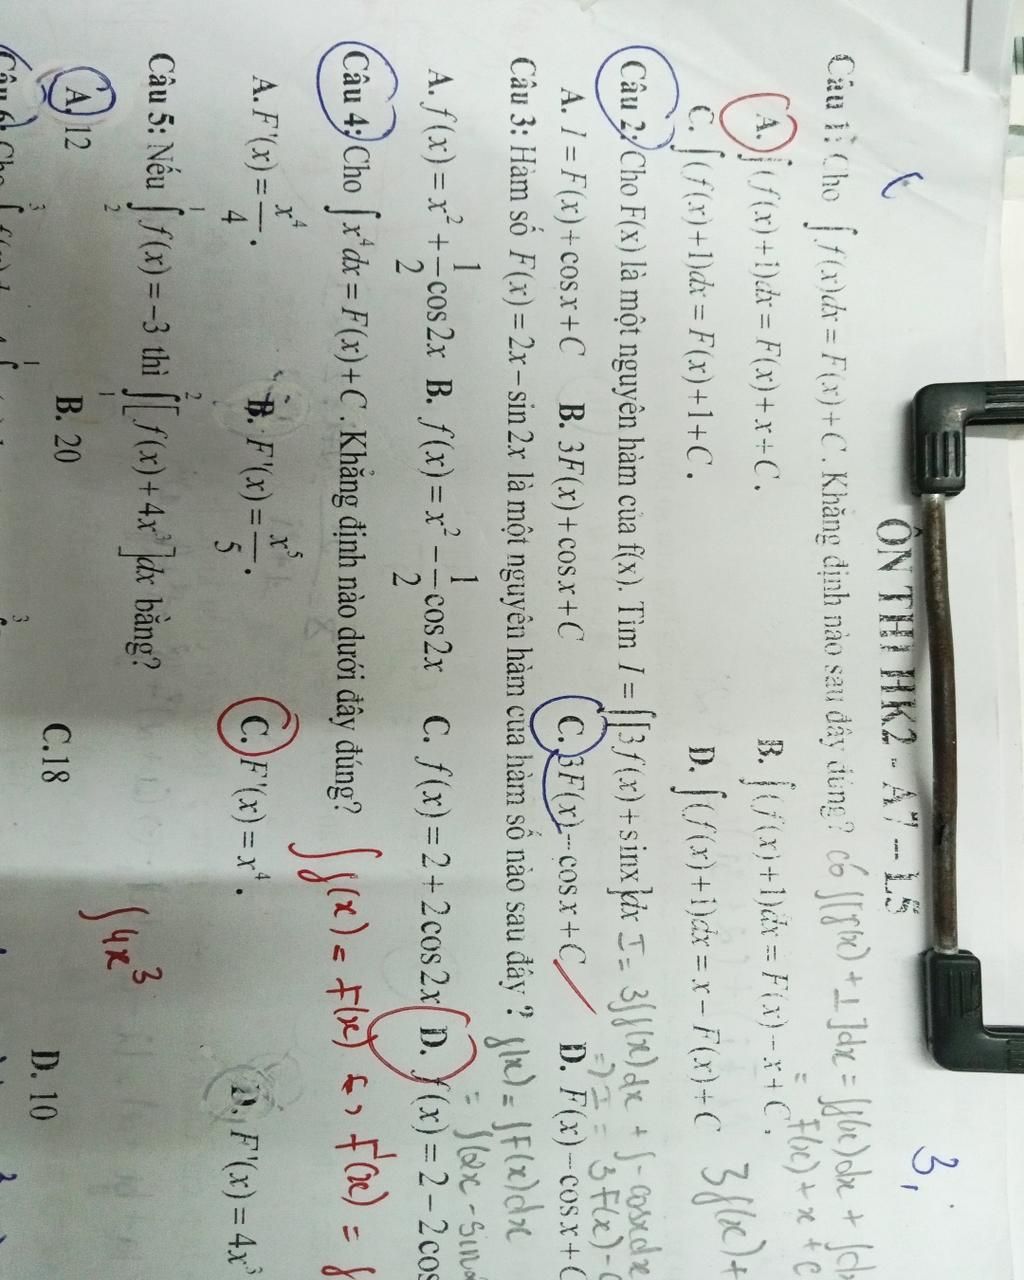 3,
ÔN THI HK2 - A7 – L5
Câu 1: Cho ∫f(x)dx = F(x)+C. Khẳng định nào sau đây đúng? có ∫[f(x) + 1]dx = ∫f(x)dx + ∫d
= F(x) + x + C
A. ∫(f(x)+1)dx = F(x)+x+C. B. ∫(f(x)+1)dx = F(x)-x+C.
C. ∫(f(x)+1)dx = F(x)+1+C. D. ∫(f(x)+1)dx = x-F(x)+C 3f(x) +
Câu 2: Cho F(x) là một nguyên hàm của f(x). Tìm I = ∫[3f(x)+sinx]dx I = 3∫f(x)dx + ∫-cosxdx
=> I = 3F(x) - C
A. I = F(x)+cosx+C B. 3F(x)+cosx+C C. 3F(x)-cosx+C D. F(x)-cosx+C
Câu 3: Hàm số F(x) = 2x-sin2x là một nguyên hàm của hàm số nào sau đây ? f(x) = ∫F(x)dx
= ∫(2x - sin
A. f(x) = x² + 1/2 cos2x B. f(x) = x² - 1/2 cos2x C. f(x) = 2+2cos2x D. f(x) = 2-2cos
Câu 4: Cho ∫x⁴dx = F(x)+C. Khẳng định nào dưới đây đúng? ∫f(x) = F(x) <=> F'(x) = f
A. F'(x) = x⁴/4. B. F'(x) = x⁵/5. C. F'(x) = x⁴. D. F'(x) = 4x³
Câu 5: Nếu ∫₂¹ f(x) = -3 thì ∫₁² [f(x)+4x³]dx bằng? ∫4x³
A. 12 B. 20 C.18 D. 10
Câu 6: Cho